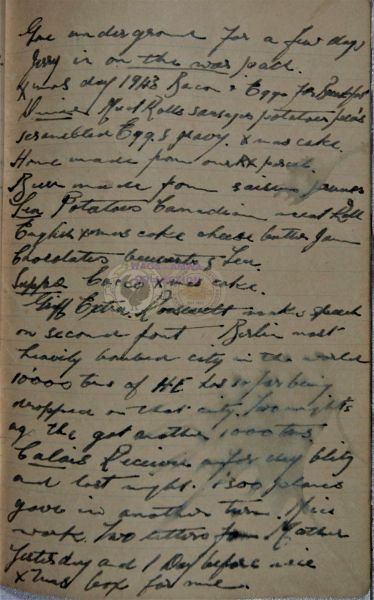 Gone underground for a few days
Jerry is on the war path.
Xmas day 1943 Bacon & Eggs for Breakfast
Dinner Meat Rolls sausages potatoes peas
scrambled Eggs gravy. Xmas cake.
Home made from our RX parcel.
Beer made from raisins prunes
Tea Potatoes Canadian meat Roll
English xmas cake cheese butter Jam
Chocolates biscuits & Tea.
Supper Cocoa xmas cake.
Griff Extra. Roosevelt makes speech
on second front Berlin most
heavily bombed city in the world
10000 tons of HE has so far being
dropped on that city. Two nights
ago the got another 1000 tons
Calais Receives a day blitz
and last night. 1300 planes
gave in another turn. Nice
work. Two letters from Mother
Yesterday and 1 Day before nice
Xmas box for me.